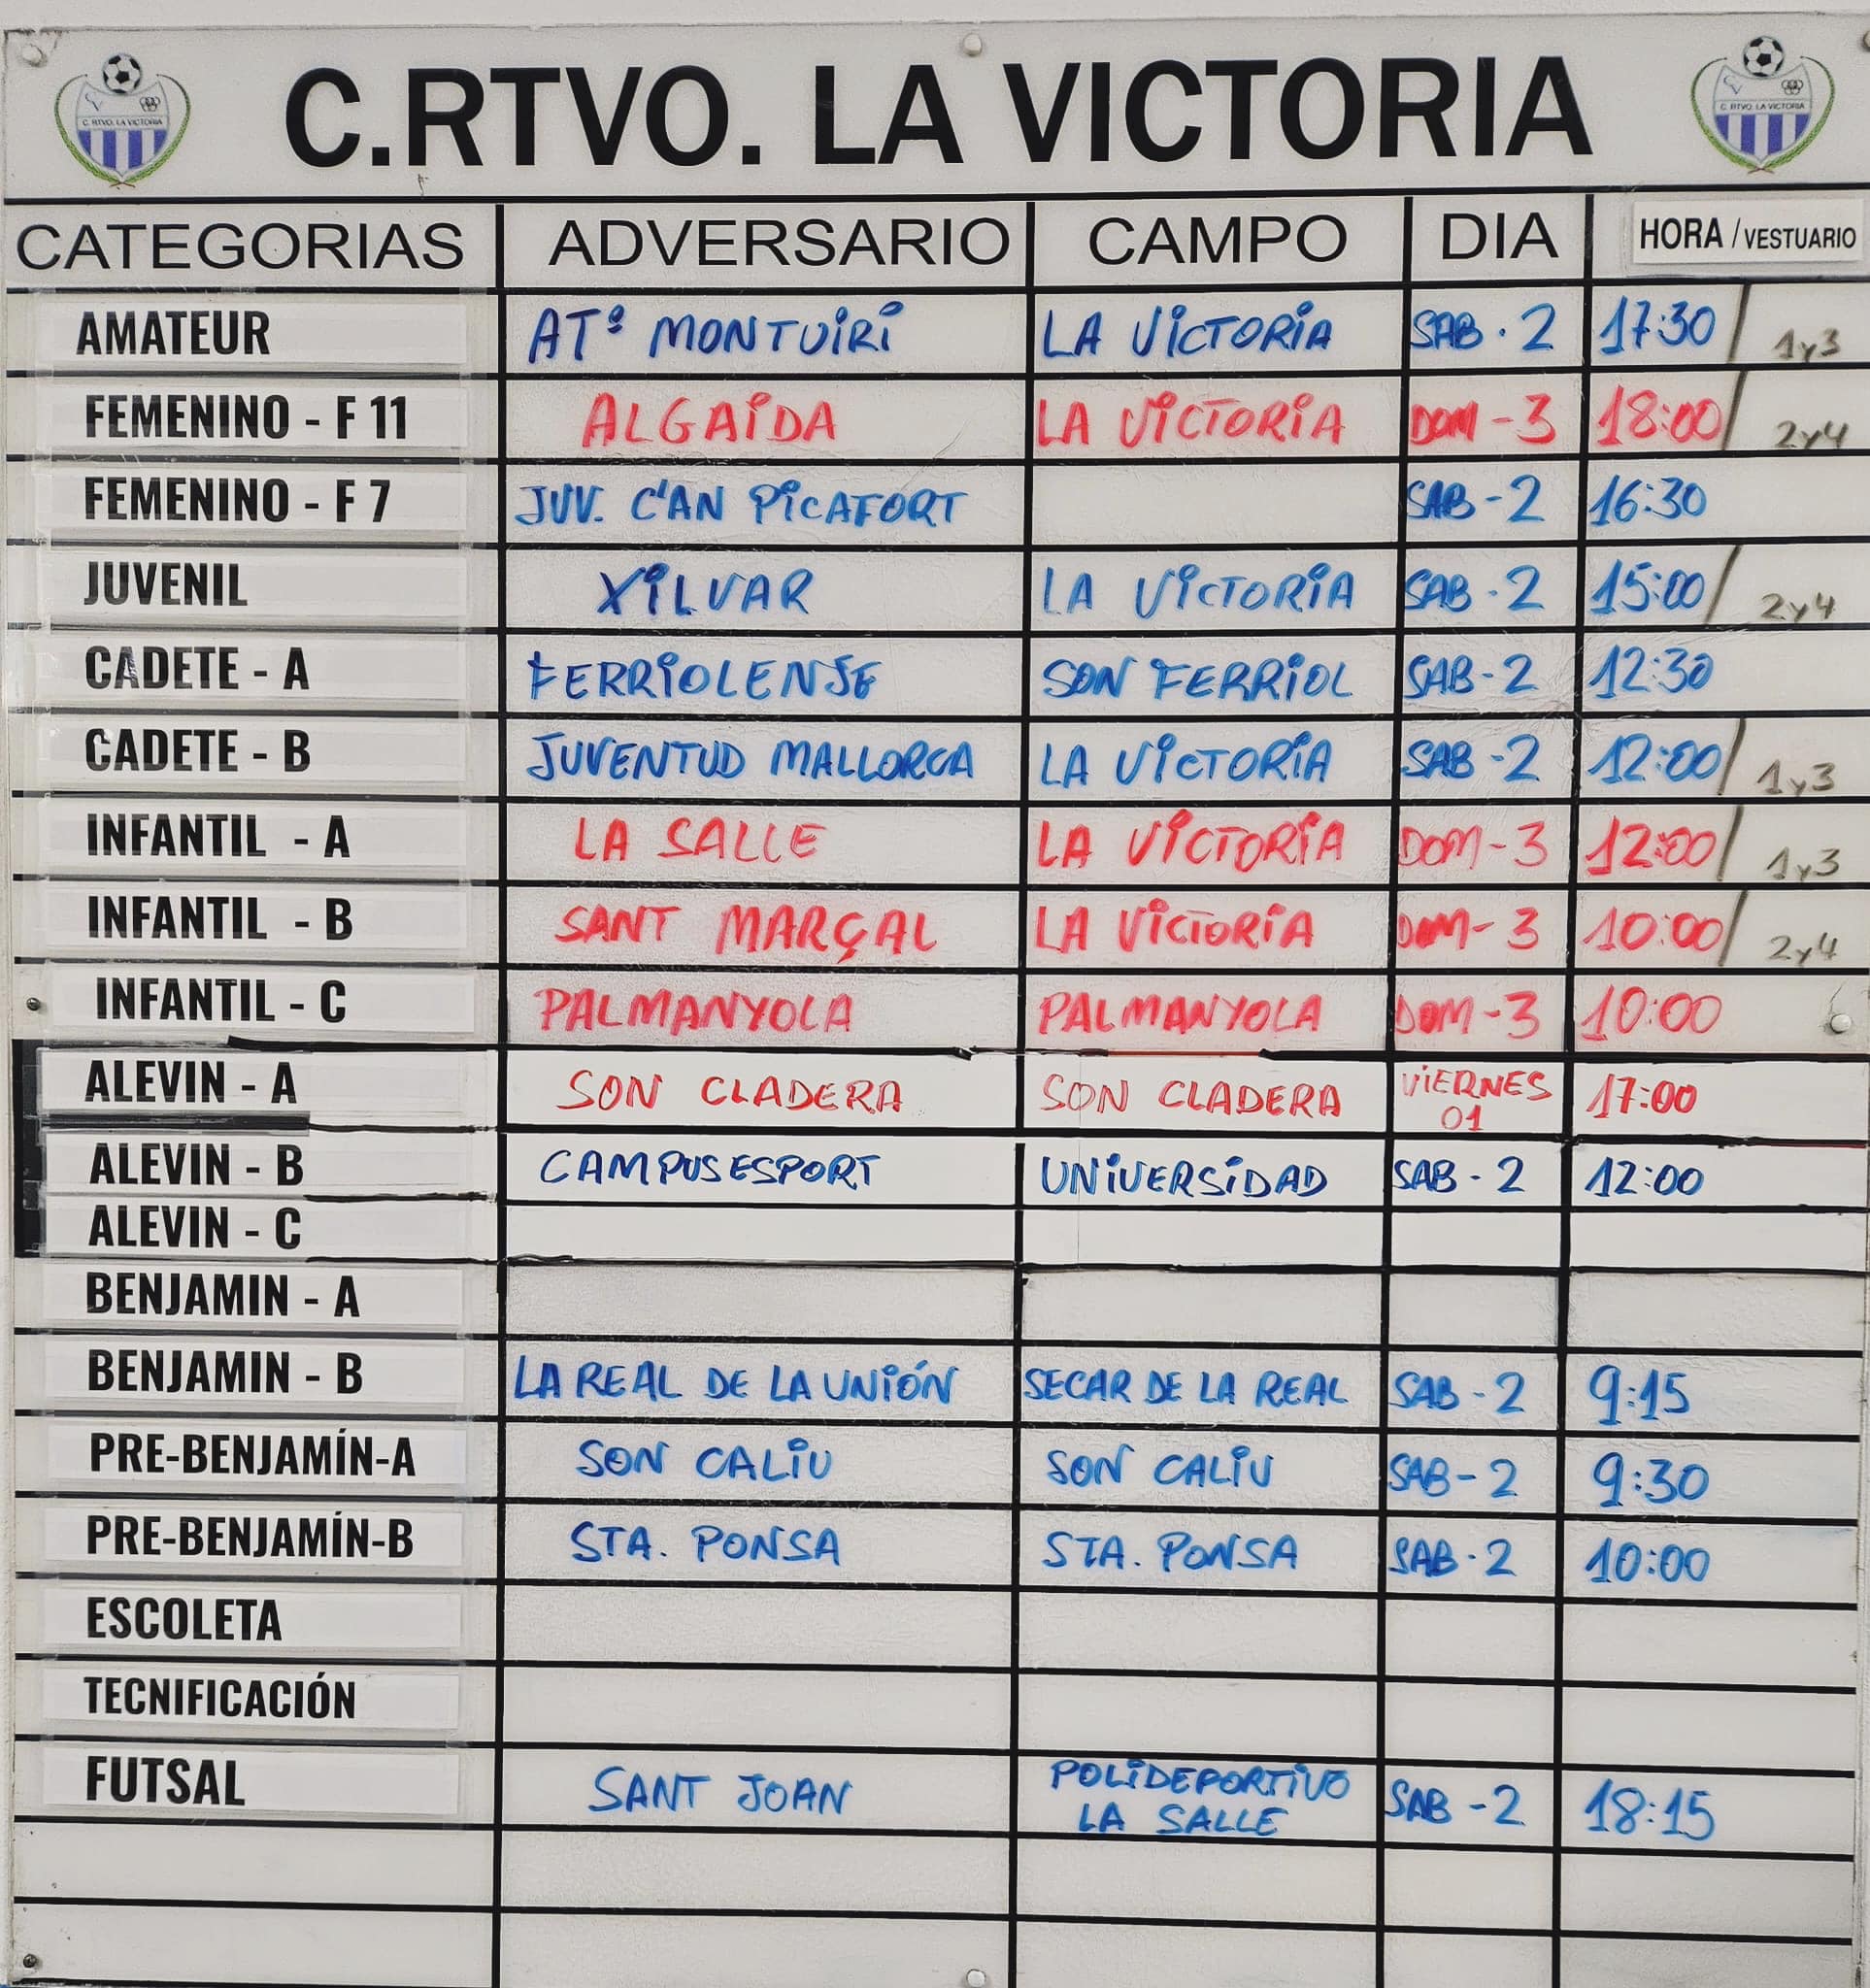 C.RTVO. LA VICTORIA
C. RTVO. LA VICTORIA
C. RTVO. LA VICTORIA
CATEGORIAS ADVERSARIO CAMPO DIA HORA / VESTUARIO
AMATEUR ATº MONTUIRI LA VICTORIA SAB - 2 17:30 / 1y3
FEMENINO - F 11 ALGAIDA LA VICTORIA DOM - 3 18:00 / 2y4
FEMENINO - F 7 JUV. C'AN PICAFORT SAB - 2 16:30
JUVENIL XILVAR LA VICTORIA SAB - 2 15:00 / 2y4
CADETE - A FERRIOLENSE SON FERRIOL SAB - 2 12:30
CADETE - B JUVENTUD MALLORCA LA VICTORIA SAB - 2 12:00 / 1y3
INFANTIL - A LA SALLE LA VICTORIA DOM - 3 12:00 / 1y3
INFANTIL - B SANT MARÇAL LA VICTORIA DOM - 3 10:00 / 2y4
INFANTIL - C PALMANYOLA PALMANYOLA DOM - 3 10:00
ALEVIN - A SON CLADERA SON CLADERA VIERNES 01 17:00
ALEVIN - B CAMPUSESPORT UNIVERSIDAD SAB - 2 12:00
ALEVIN - C
BENJAMIN - A
BENJAMIN - B LA REAL DE LA UNIÓN SECAR DE LA REAL SAB - 2 9:15
PRE-BENJAMÍN-A SON CALIU SON CALIU SAB - 2 9:30
PRE-BENJAMÍN-B STA. PONSA STA. PONSA SAB - 2 10:00
ESCOLETA
TECNIFICACIÓN
FUTSAL SANT JOAN POLIDEPORTIVO LA SALLE SAB - 2 18:15